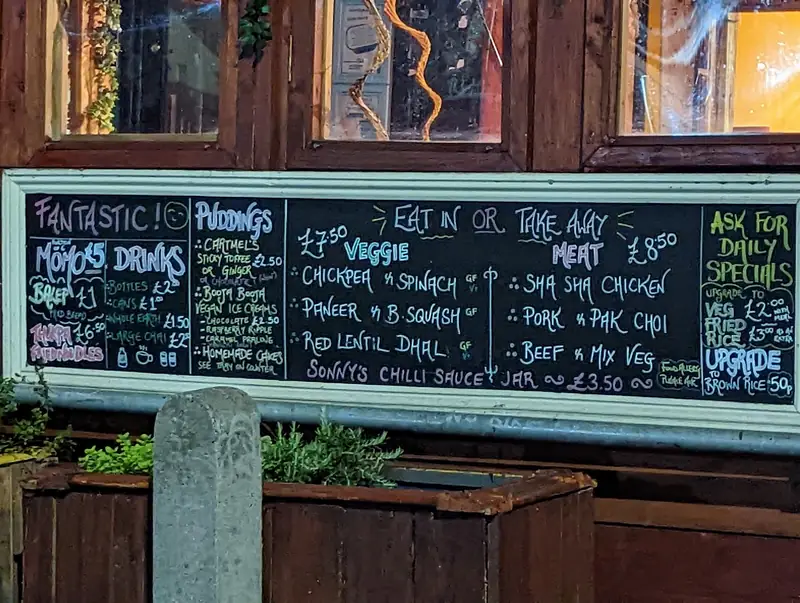 FANTASTIC!
MOMO £5
BALEP £1
FRIED BREAD
THUKPA £6.50
FRIED NOODLES
DRINKS
BOTTLES £2
CANS £1
WHOLE EARTH £1.50
LARGE CHAI £2
PUDDINGS
CARTMEL'S
STICKY TOFFEE £2.50
OR GINGER
OR CHOCOLATE
BOOJA BOOJA
VEGAN ICE CREAMS
- CHOCOLATE £2.50
- RASPBERRY RIPPLE
- CARAMEL PRALINE
HOMEMADE CAKES
SEE TRAY ON COUNTER
EAT IN OR TAKE AWAY
£7.50 VEGGIE
CHICKPEA & SPINACH GF V
PANEER & B. SQUASH GF
RED LENTIL DHAL GF V
MEAT £8.50
SHA SHA CHICKEN
PORK & PAK CHOI
BEEF & MIX VEG
SONNY'S CHILLI SAUCE JAR ~ £3.50 ~
FOOD ALLERGIES
PLEASE ASK
ASK FOR
DAILY
SPECIALS
UPGRADE TO
VEG £2.00 WITH MEAL
FRIED
RICE £3.00 AS AN EXTRA
UPGRADE
TO BROWN RICE 50p